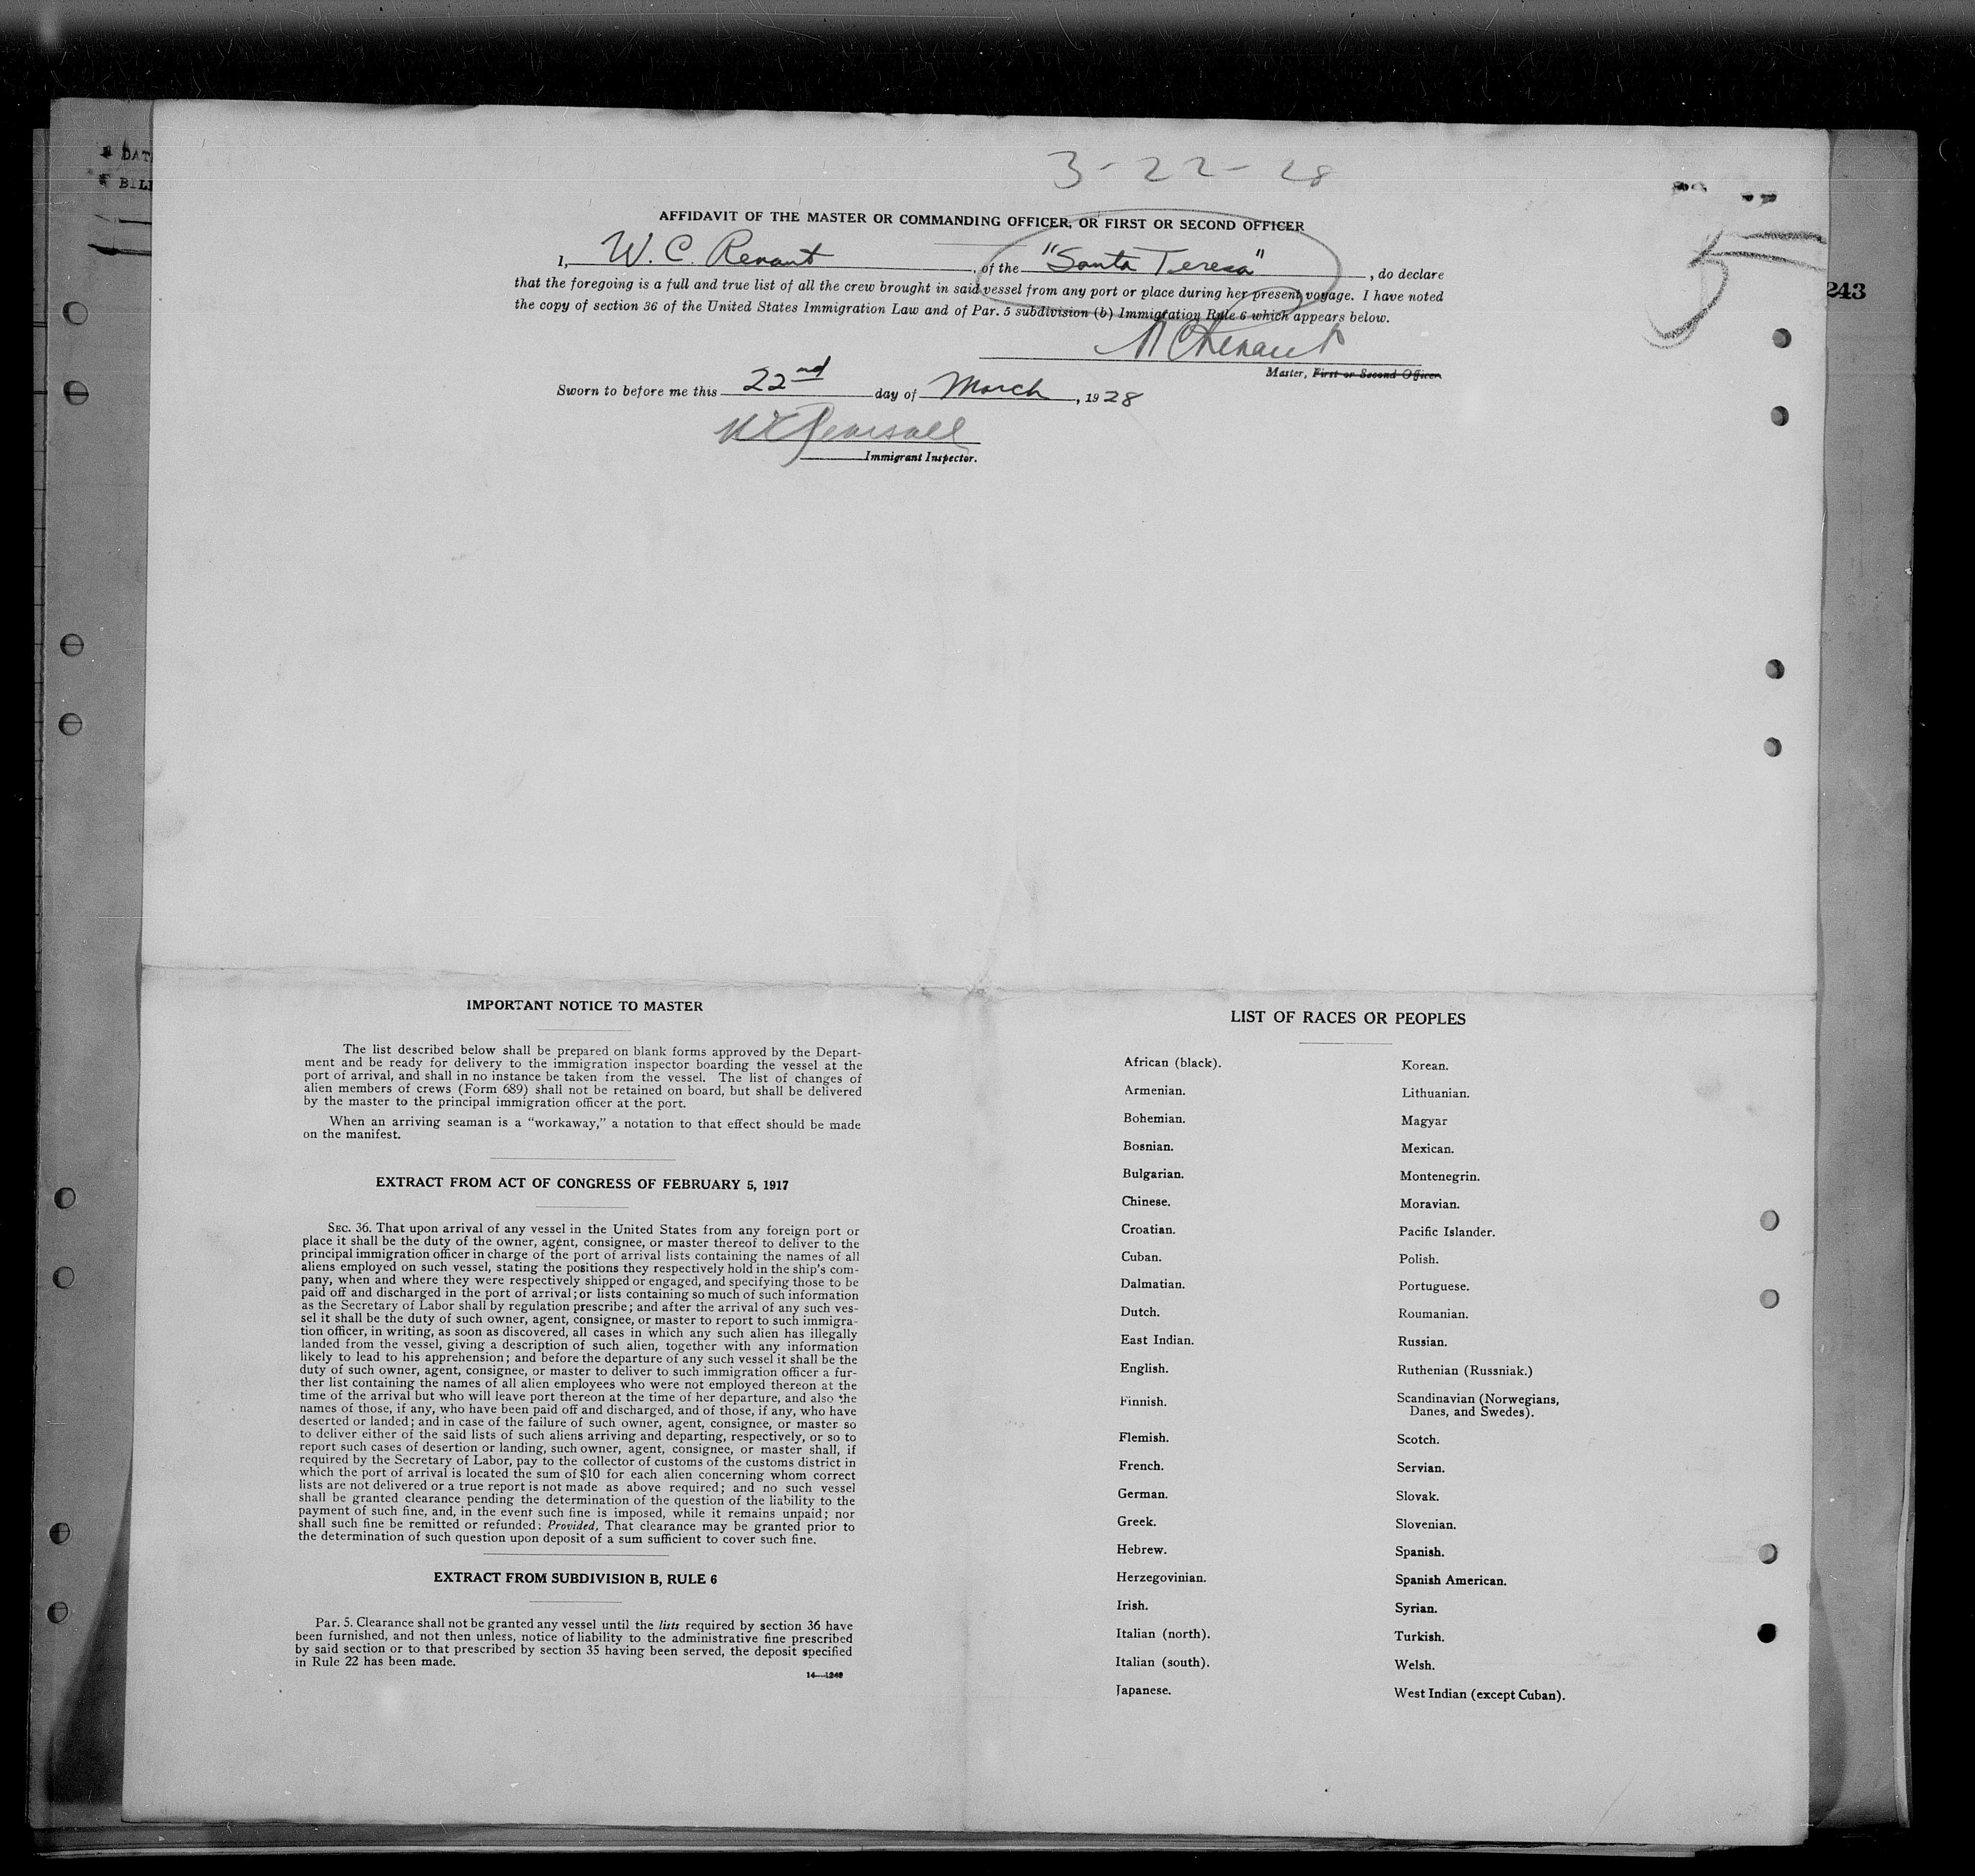 DAT
BILL
3-22-28
5
243
AFFIDAVIT OF THE MASTER OR COMMANDING OFFICER, OR FIRST OR SECOND OFFICER
I, W. C. Renaut, of the "Santa Teresa", do declare
that the foregoing is a full and true list of all the crew brought in said vessel from any port or place during her present voyage. I have noted
the copy of section 36 of the United States Immigration Law and of Par. 5 subdivision (b) Immigration Rule 6 which appears below.
W C Renaut
Master, First or Second Officer
Sworn to before me this 22nd day of March, 1928
Pearsall
Immigrant Inspector.
IMPORTANT NOTICE TO MASTER
The list described below shall be prepared on blank forms approved by the Depart-
ment and be ready for delivery to the immigration inspector boarding the vessel at the
port of arrival, and shall in no instance be taken from the vessel. The list of changes of
alien members of crews (Form 689) shall not be retained on board, but shall be delivered
by the master to the principal immigration officer at the port.
When an arriving seaman is a "workaway," a notation to that effect should be made
on the manifest.
EXTRACT FROM ACT OF CONGRESS OF FEBRUARY 5, 1917
SEC. 36. That upon arrival of any vessel in the United States from any foreign port or
place it shall be the duty of the owner, agent, consignee, or master thereof to deliver to the
principal immigration officer in charge of the port of arrival lists containing the names of all
aliens employed on such vessel, stating the positions they respectively hold in the ship's com-
pany, when and where they were respectively shipped or engaged, and specifying those to be
paid off and discharged in the port of arrival; or lists containing so much of such information
as the Secretary of Labor shall by regulation prescribe; and after the arrival of any such ves-
sel it shall be the duty of such owner, agent, consignee, or master to report to such immigra-
tion officer, in writing, as soon as discovered, all cases in which any such alien has illegally
landed from the vessel, giving a description of such alien, together with any information
likely to lead to his apprehension; and before the departure of any such vessel it shall be the
duty of such owner, agent, consignee, or master to deliver to such immigration officer a fur-
ther list containing the names of all alien employees who were not employed thereon at the
time of the arrival but who will leave port thereon at the time of her departure, and also the
names of those, if any, who have been paid off and discharged, and of those, if any, who have
deserted or landed; and in case of the failure of such owner, agent, consignee, or master so
to deliver either of the said lists of such aliens arriving and departing, respectively, or so to
report such cases of desertion or landing, such owner, agent, consignee, or master shall, if
required by the Secretary of Labor, pay to the collector of customs of the customs district in
which the port of arrival is located the sum of $10 for each alien concerning whom correct
lists are not delivered or a true report is not made as above required; and no such vessel
shall be granted clearance pending the determination of the question of the liability to the
payment of such fine, and, in the event such fine is imposed, while it remains unpaid; nor
shall such fine be remitted or refunded: Provided, That clearance may be granted prior to
the determination of such question upon deposit of a sum sufficient to cover such fine.
EXTRACT FROM SUBDIVISION B, RULE 6
Par. 5. Clearance shall not be granted any vessel until the lists required by section 36 have
been furnished, and not then unless, notice of liability to the administrative fine prescribed
by said section or to that prescribed by section 35 having been served, the deposit specified
in Rule 22 has been made.
14—1248
LIST OF RACES OR PEOPLES
African (black).
Armenian.
Bohemian.
Bosnian.
Bulgarian.
Chinese.
Croatian.
Cuban.
Dalmatian.
Dutch.
East Indian.
English.
Finnish.
Flemish.
French.
German.
Greek.
Hebrew.
Herzegovinian.
Irish.
Italian (north).
Italian (south).
Japanese.
Korean.
Lithuanian.
Magyar
Mexican.
Montenegrin.
Moravian.
Pacific Islander.
Polish.
Portuguese.
Roumanian.
Russian.
Ruthenian (Russniak.)
Scandinavian (Norwegians,
Danes, and Swedes).
Scotch.
Servian.
Slovak.
Slovenian.
Spanish.
Spanish American.
Syrian.
Turkish.
Welsh.
West Indian (except Cuban).